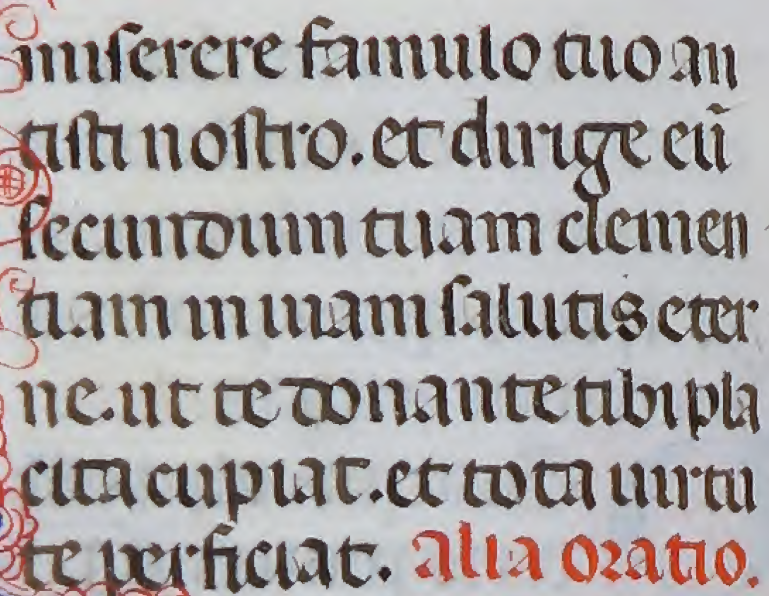 miserere famulo tuo an
tisti nostro. et dirige eū
secundum tuam clemen
tiam in uiam salutis eter
ne. ut te donante tibi pla
cita cupiat. et tota uirtu
te perficiat. alia oratio.